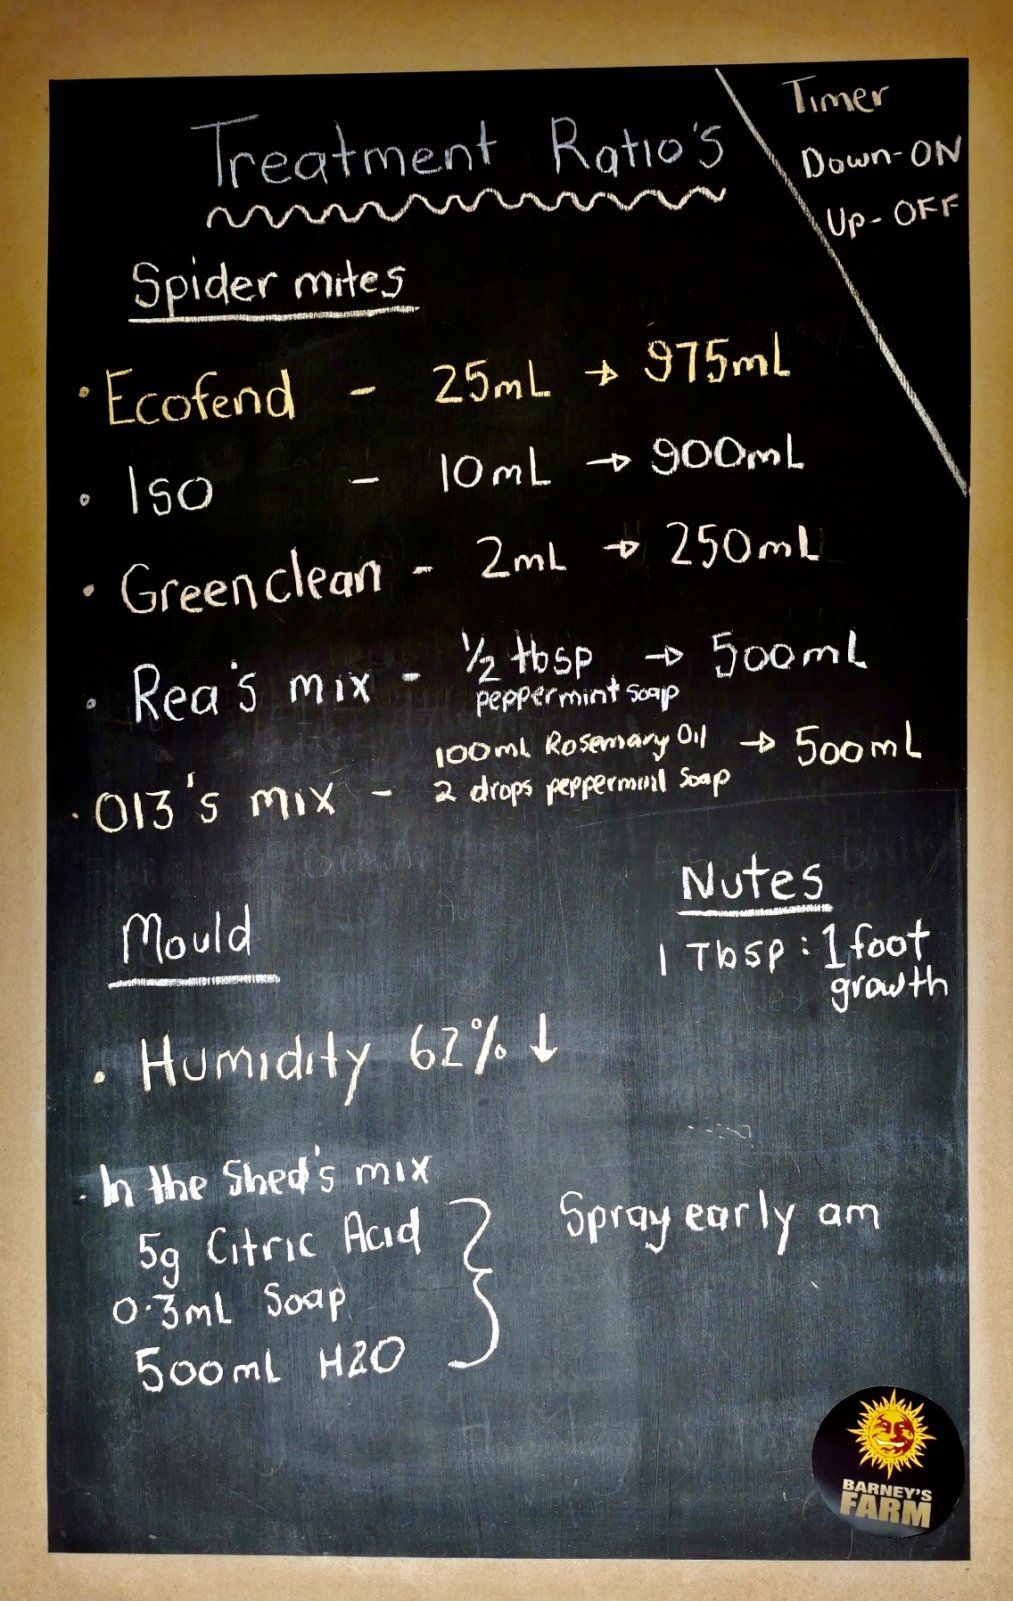 Treatment Ratio's
Timer
Down-ON
Up-OFF
Spider mites
• Ecofend - 25mL → 975mL
• Iso - 10mL → 900mL
• Greenclean - 2mL → 250mL
• Rea's mix - 1/2 tbsp peppermint soap → 500mL
• 013's mix - 100mL Rosemary Oil → 500mL
2 drops peppermint soap
Nutes
1 Tbsp : 1 foot
growth
Mould
• Humidity 62% ↓
• In the Shed's mix
5g Citric Acid
0.3mL Soap
500mL H2O
Spray early am
BARNEY'S
FARM